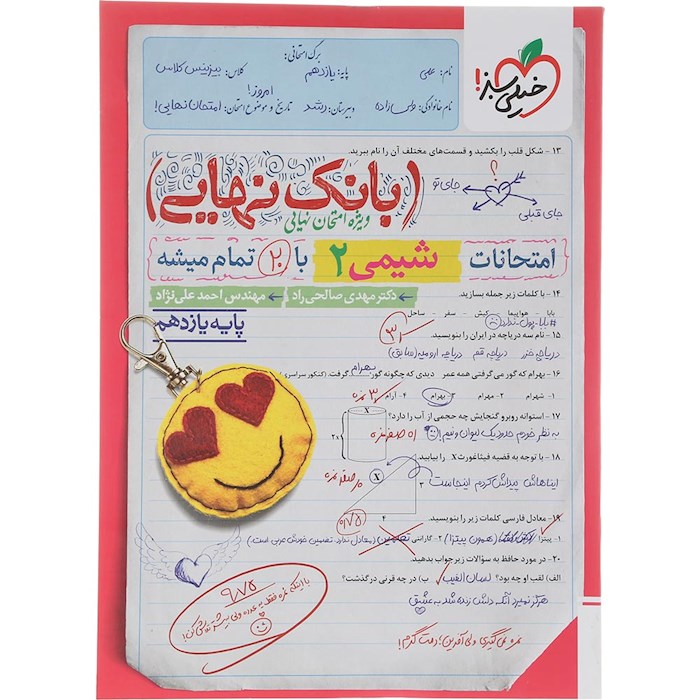 خیلی سبز!
برگ امتحانی:
نام: علی
پایه: یازدهم
کلاس: بیزینس کلاس
نام خانوادگی: ولی‌زاده
دبیرستان: رشد
امروز!
تاریخ و موضوع امتحان: امتحان نهایی!
۱۳- شکل قلب را بکشید و قسمت‌های مختلف آن را نام ببرید.
؟
جای تو
جای قبلی
(بانک نهایی)
ویژه امتحان نهایی
امتحانات شیمی ۲ با ۲۰ تمام میشه
دکتر مهدی صالحی‌راد
مهندس احمد علی‌نژاد
پایه یازدهم
۱۴- با کلمات زیر جمله بسازید.
بابا - هواپیما - کیش - سفر - ساحل
#بابا_پول_نداره
۱۵- نام سه دریاچه در ایران را بنویسید.
دریاچه خزر دریاچه قم دریاچه ارومیه (سابق)
۱۶- بهرام که گور می‌گرفتی همه عمر دیدی که چگونه گور بهرام گرفت. (کنکور سراسری
۱- شهرام ۲- مهرام ۳- بهرام ۴- آرام
۱۷- استوانه روبرو گنجایش چه حجمی از آب را دارد؟
X
2x
به نظر خودم حدود یک لیوان و نیم!
۱۸- با توجه به قضیه فیثاغورث X را بیابید.
ایناهاش پیداش کردم اینجاست
X
۳
۴
۱۹- معادل فارسی کلمات زیر را بنویسید.
۱- پیتزا (همون پیتزا) ۲- گارانتی تضمین (معادل ندارد. تضمین خودش عربی است.)
۲۰- در مورد حافظ به سؤالات زیر جواب بدهید.
الف) لقب او چه بود؟ لسان الغیب ب) در چه قرنی درگذشت؟
هرگز نمیرد آنکه دلش زنده شد به عشق
۹/۷۵
نمره می‌گیری ولی آفرین؛ دمت گرم!